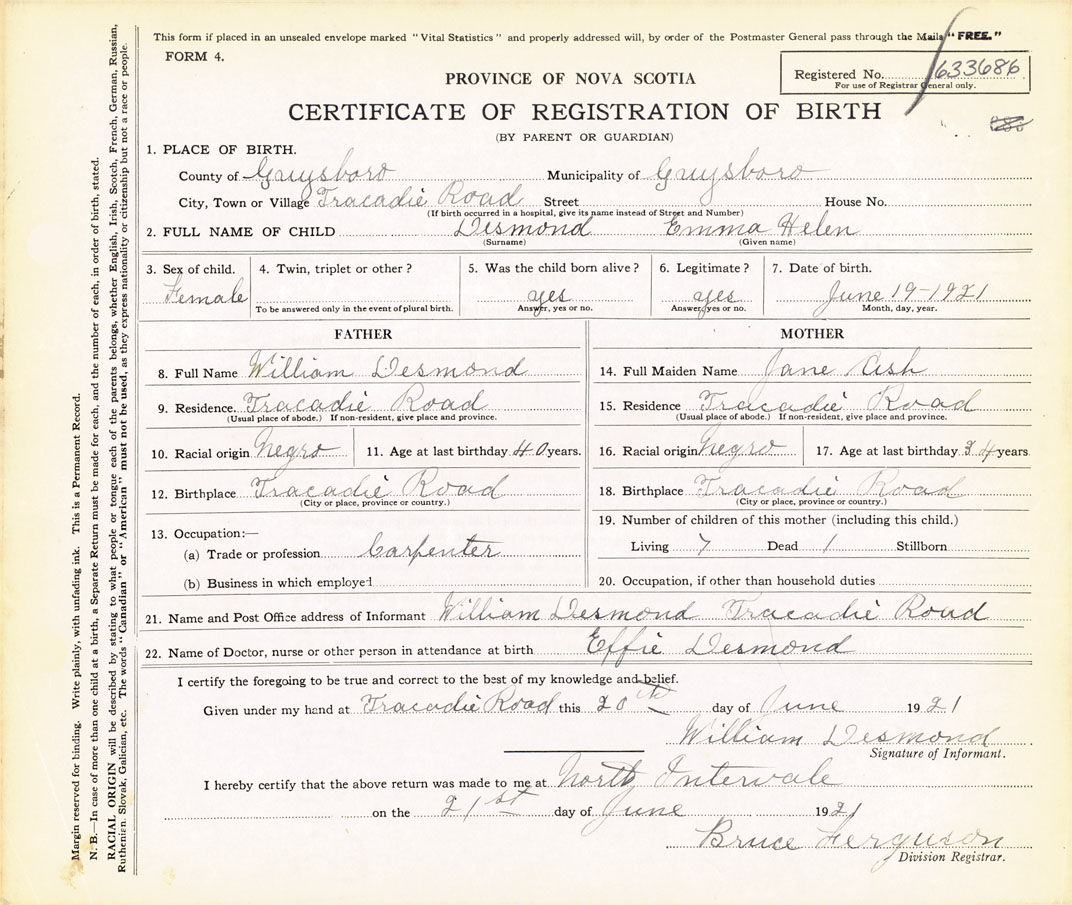 This form if placed in an unsealed envelope marked "Vital Statistics" and properly addressed will, by order of the Postmaster General pass through the Mails "FREE."
FORM 4.
Registered No. 633686
For use of Registrar General only.
PROVINCE OF NOVA SCOTIA
CERTIFICATE OF REGISTRATION OF BIRTH
(BY PARENT OR GUARDIAN)
1. PLACE OF BIRTH.
County of Guysboro Municipality of Guysboro
City, Town or Village Tracadie Road Street House No.
(If birth occurred in a hospital, give its name instead of Street and Number)
2. FULL NAME OF CHILD Desmond Emma Helen
(Surname) (Given name)
3. Sex of child. 4. Twin, triplet or other? 5. Was the child born alive? 6. Legitimate? 7. Date of birth.
Female yes yes June 19-1921
To be answered only in the event of plural birth. Answer, yes or no. Answer, yes or no. Month, day, year.
FATHER
8. Full Name William Desmond
9. Residence. Tracadie Road
(Usual place of abode.) If non-resident, give place and province.
10. Racial origin Negro 11. Age at last birthday 40 years.
12. Birthplace Tracadie Road
(City or place, province or country.)
13. Occupation:—
(a) Trade or profession Carpenter
(b) Business in which employed
MOTHER
14. Full Maiden Name Jane Ash
15. Residence Tracadie Road
(Usual place of abode.) If non-resident, give place and province.
16. Racial origin Negro 17. Age at last birthday 34 years
18. Birthplace Tracadie Road
(City or place, province or country.)
19. Number of children of this mother (including this child.)
Living 7 Dead 1 Stillborn
20. Occupation, if other than household duties
21. Name and Post Office address of Informant William Desmond Tracadie Road
22. Name of Doctor, nurse or other person in attendance at birth Effie Desmond
I certify the foregoing to be true and correct to the best of my knowledge and belief.
Given under my hand at Tracadie Road this 20th day of June 1921
William Desmond
Signature of Informant.
I hereby certify that the above return was made to me at North Intervale
on the 21st day of June 1921
Bruce Ferguson
Division Registrar.
Margin reserved for binding. Write plainly, with unfading ink. This is a Permanent Record.
N. B.—In case of more than one child at a birth, a Separate Return must be made for each, and the number of each, in order of birth, stated.
RACIAL ORIGIN will be described by stating to what people or tongue each of the parents belongs, whether English, Irish, Scotch, French, German, Russian,
Ruthenian, Slovak, Galician, etc. The words "Canadian" or "American" must not be used, as they express nationality or citizenship but not a race or people.